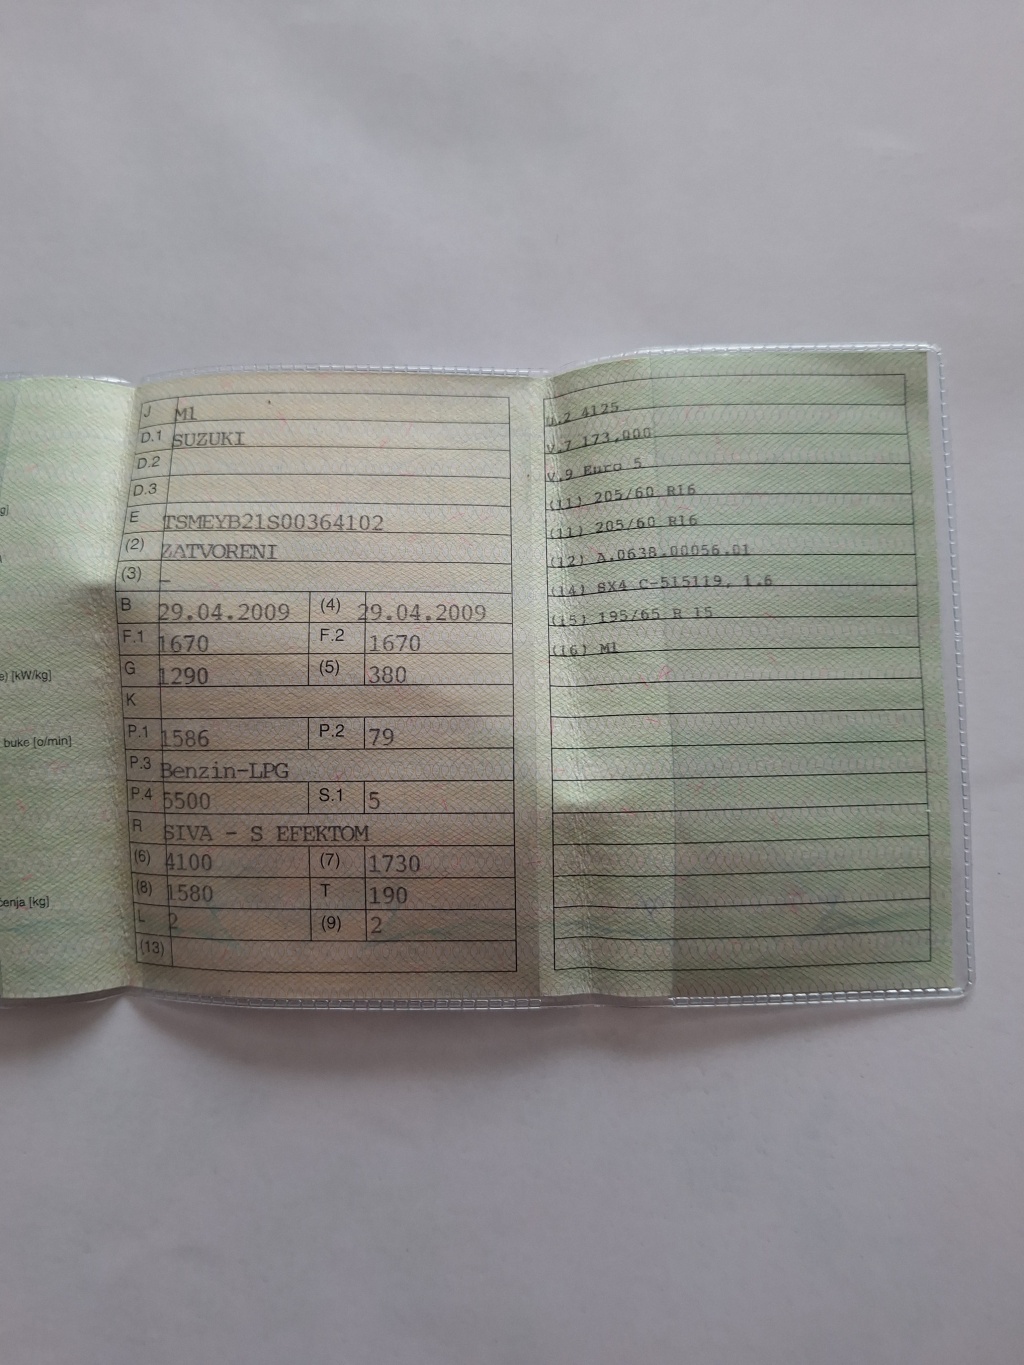 g]
e) [kW/kg]
buke [o/min]
čenja [kg]
J M1
D.1 SUZUKI
D.2
D.3
E TSMEYB21S00364102
(2) ZATVORENI
(3) –
B 29.04.2009 (4) 29.04.2009
F.1 1670 F.2 1670
G 1290 (5) 380
K
P.1 1586 P.2 79
P.3 Benzin-LPG
P.4 5500 S.1 5
R SIVA - S EFEKTOM
(6) 4100 (7) 1730
(8) 1580 T 190
L 2 (9) 2
(13)
U.2 4125
V.7 173,000
V.9 Euro 5
(11) 205/60 R16
(11) 205/60 R16
(12) A.0638.00056.01
(14) SX4 C-515119, 1.6
(15) 195/65 R 15
(16) M1